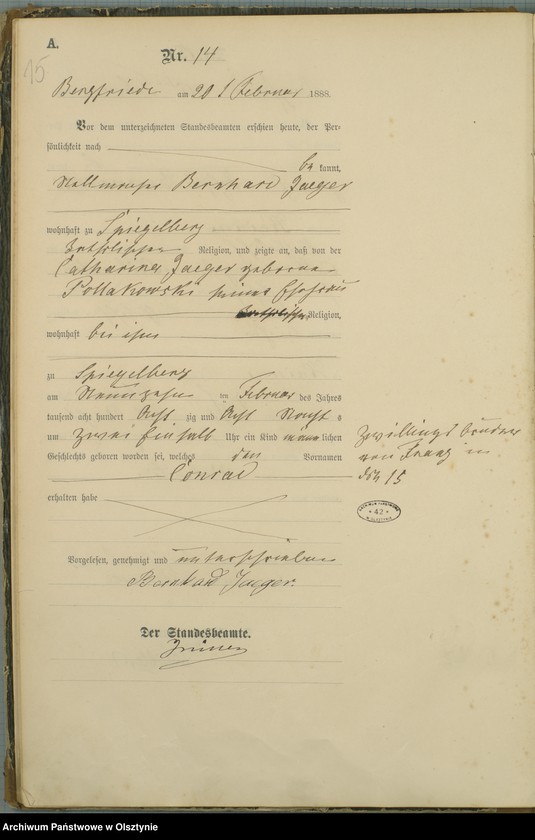 A.
15
Nr. 14
Bergfriede am 20 t Februar 1888.
Vor dem unterzeichneten Standesbeamten erschien heute, der Per-
sönlichkeit nach
be kannt,
Bernhard Jaeger
wohnhaft zu Spiegelberg
katholischer Religion, und zeigte an, daß von der
Catharina Jaeger geborene
Pollakowski seiner Ehefrau
katholischer Religion,
wohnhaft bei ihm
zu Spiegelberg
am Neunzehn ten Februar des Jahres
tausend acht hundert Acht zig und Acht Nacht s
um zwei einhalb Uhr ein Kind männ lichen
Geschlechts geboren worden sei, welches den Vornamen
Conrad
erhalten habe
Zwillings bruder
von Franz in
No 15
42
Vorgelesen, genehmigt und unterschrieben
Bernhard Jaeger.
Der Standesbeamte.
Archiwum Państwowe w Olsztynie